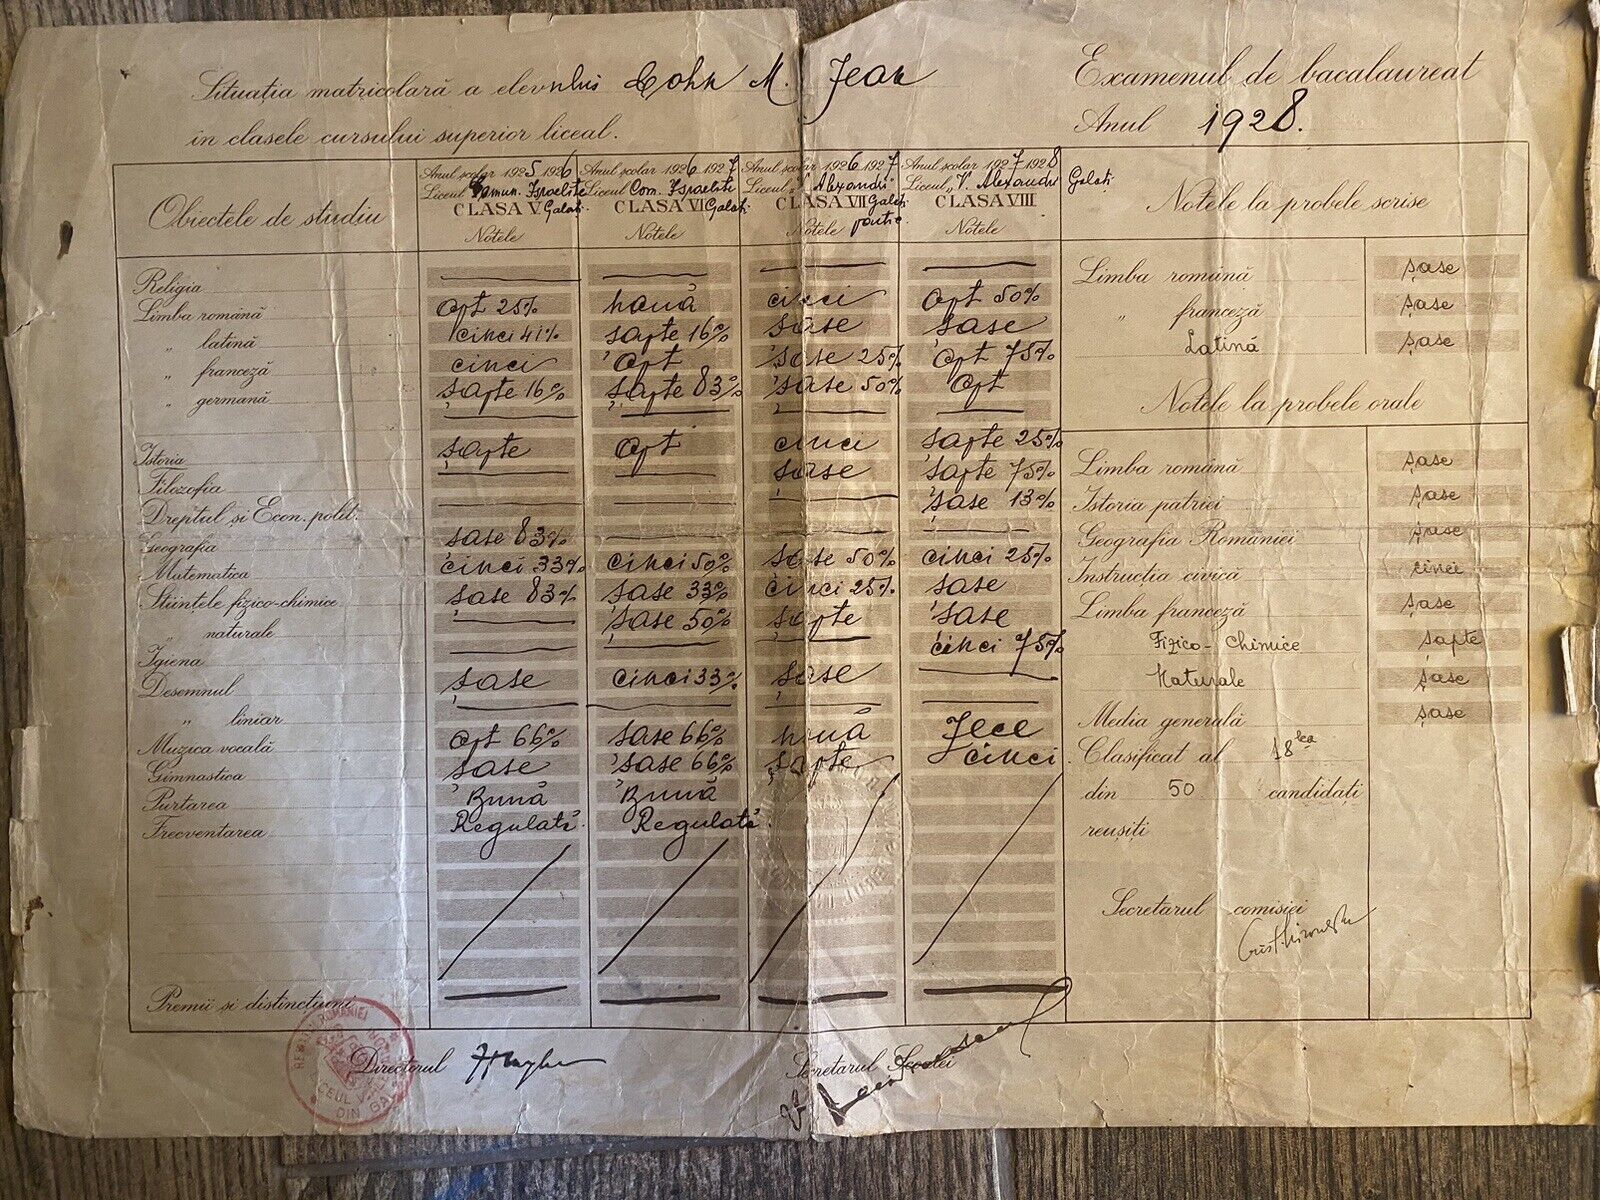 Situația matricolară a elevului Cohn M. Jean
în clasele cursului superior liceal.
Examenul de bacalaureat
Anul 1928.
Obiectele de studiu
Anul școlar 1925 1926
Liceul Comun. Israelite
CLASA V Galați
Notele
Anul școlar 1926 1927
Liceul Com. Israelite
CLASA VI Galați
Notele
Anul școlar 1926 1927
Liceul Alexandri"
CLASA VII Galați
Notele
Anul școlar 1927 1928
Liceul „V. Alexandri Galați
CLASA VIII
Notele
Notele la probele scrise
Religia
Limba română opt 25% nouă cinci opt 50%
„ latină cinci 41% șapte 16% șase șase
„ franceză cinci opt șase 25% opt 75%
„ germană șapte 16% șapte 83% șase 50% opt
Istoria șapte opt cinci șapte 25%
Filozofia șase șapte 75%
Dreptul și Econ. polit. șase 13%
Geografia șase 83%
Matematica cinci 33% cinci 50% șase 50% cinci 25%
Stiințele fizico-chimice șase 83% șase 33% cinci 25% șase
„ naturale șase 50% șapte șase
Igiena cinci 75%
Desemnul șase cinci 33% șase
„ liniar
Muzica vocală opt 66% șase 66% nouă Zece
Gimnastica șase șase 66% șapte cinci
Purtarea Bună Bună
Frecventarea Regulată Regulată
Premii și distincțiuni
Limba română șase
„ franceză șase
Latină șase
Notele la probele orale
Limba română șase
Istoria patriei șase
Geografia României șase
Instrucția civică cinci
Limba franceză șase
Fizico-Chimice șapte
Naturale șase
Media generală șase
Clasificat al 18lea
din 50 candidați
reușiți
Secretarul comisiei
Directorul
Secretarul Școalei